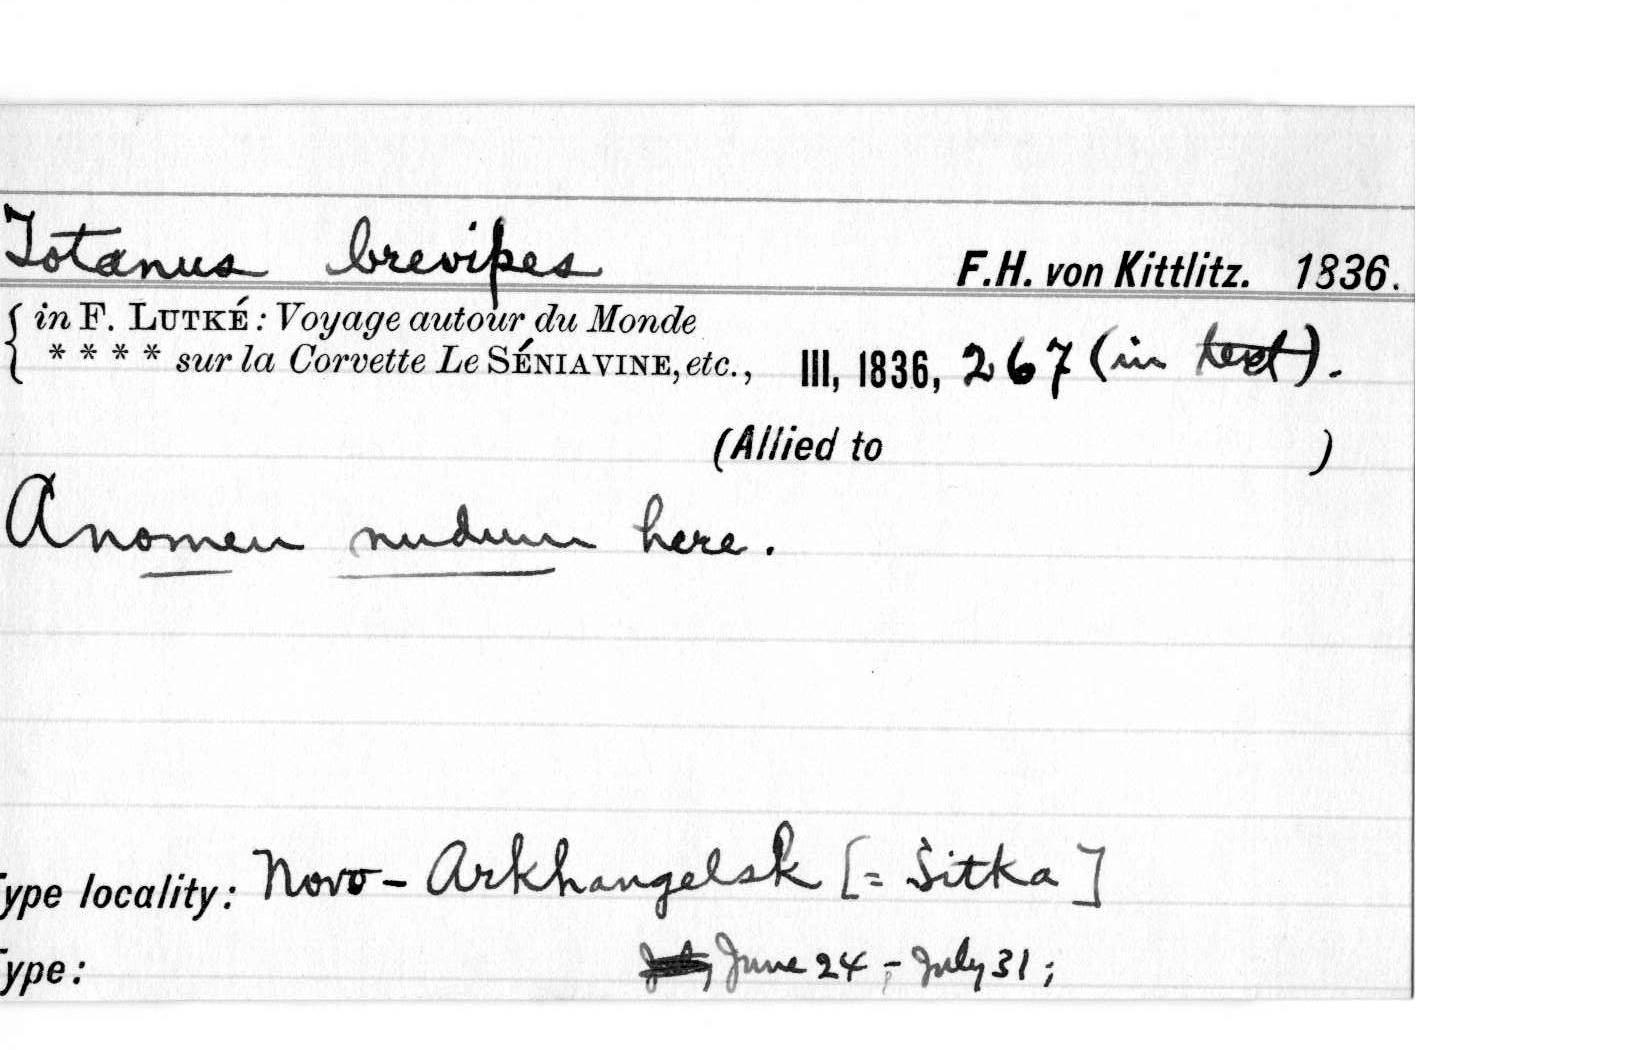 Totanus brevipes F.H. von Kittlitz. 1836.
{ in F. LUTKÉ: Voyage autour du Monde
* * * * sur la Corvette Le SÉNIAVINE, etc., III, 1836, 267 (in text).
(Allied to )
A nomen nudum here.
ype locality: Novo-Arkhangelsk [= Sitka]
ype: June 24 - July 31;